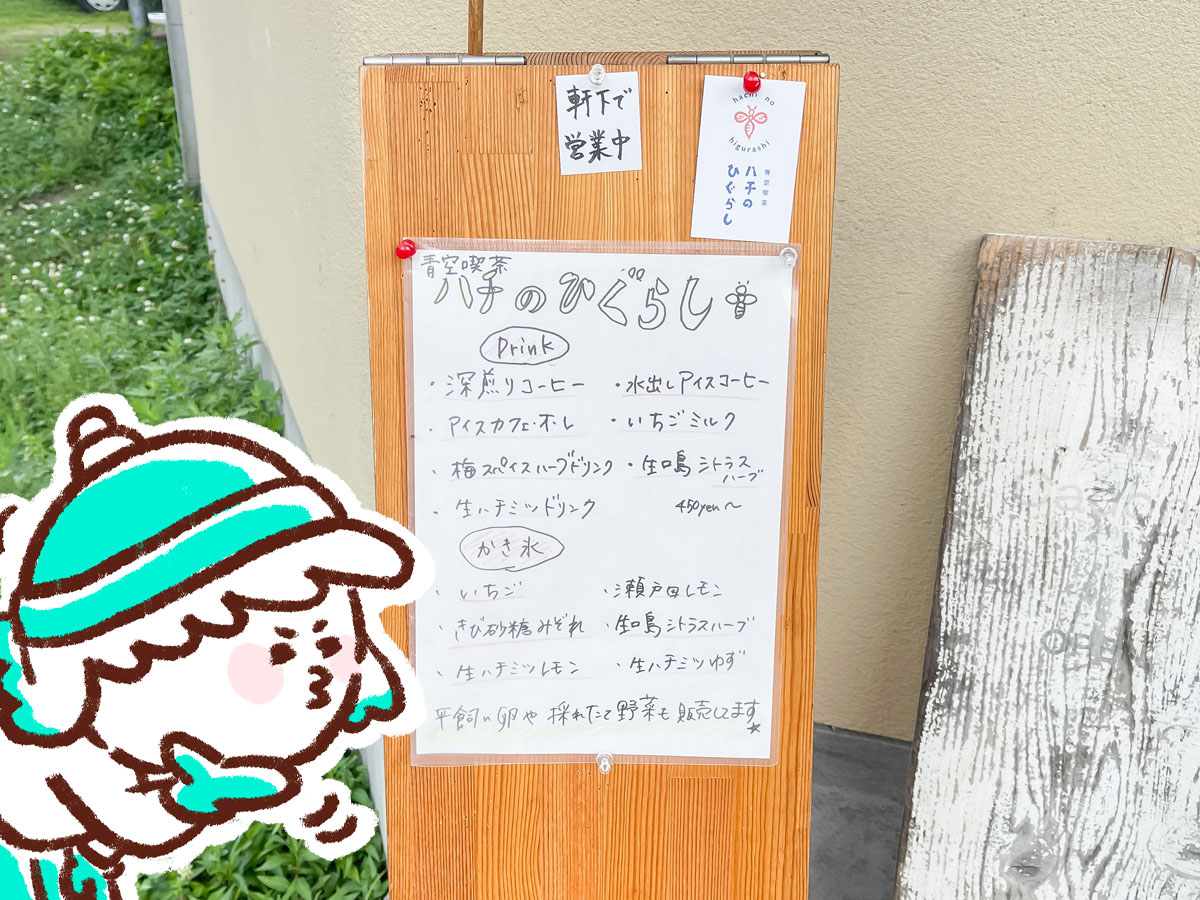 軒下で
営業中
hachi no
higurashi
青空喫茶
ハチの
ひぐらし
青空喫茶
ハチのひぐらし
Drink
・深煎りコーヒー ・水出しアイスコーヒー
・アイスカフェ・オ・レ ・いちごミルク
・梅スパイスハーブドリンク ・生口島シトラスハーブ
・生ハチミツドリンク 450yen〜
かき氷
・いちご ・瀬戸田レモン
・きび砂糖みぞれ ・生口島シトラスハーブ
・生ハチミツレモン ・生ハチミツゆず
平飼い卵や採れたて野菜も販売してます☆